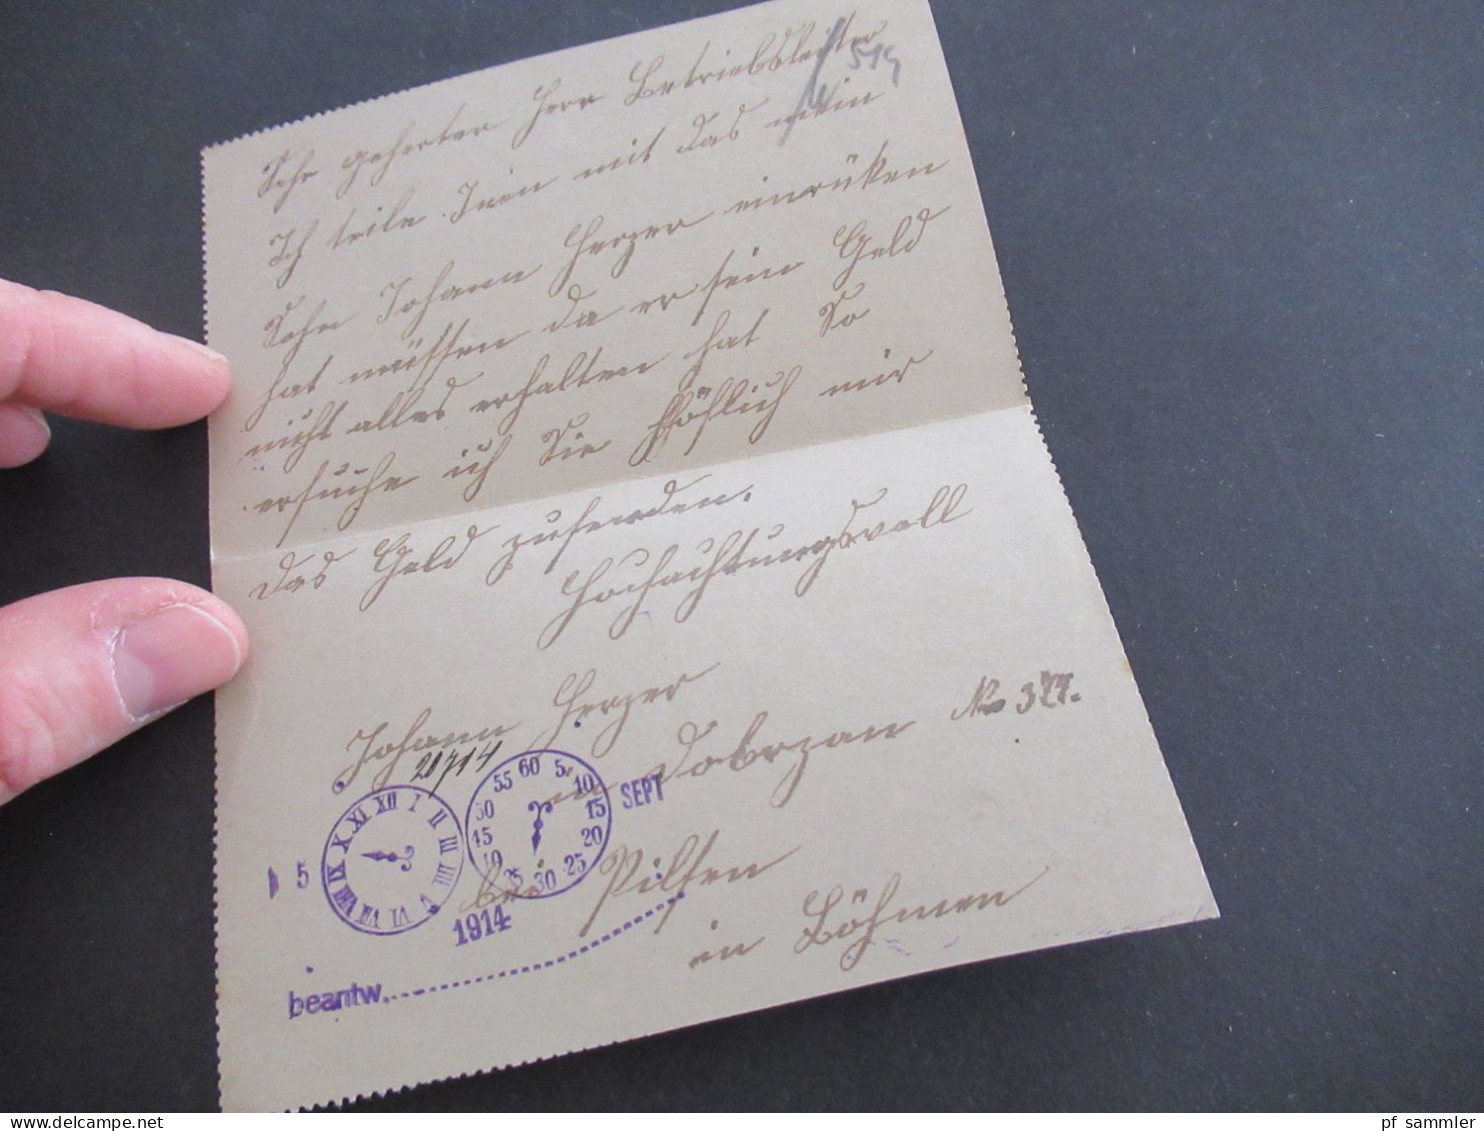 519
Sehr geherter Herr Betriebsleiter
Ich teile Inen mit das mein
Sohn Johann Herzer einrüken
hat müssen da er sein Geld
nicht alles erhalten hat So
ersuche ich Sie höflich mir
das Geld zusenden.
Hochachtungsvoll
Johann Herzer
in Dobrzan No 377.
bei Pilsen
in Böhmen
20714
5 SEPT
XII I II III IIII V VI VII VIII IX X XI
60 5 10 15 20 25 30 35 40 45 50 55
1914
beantw.
pf sammler